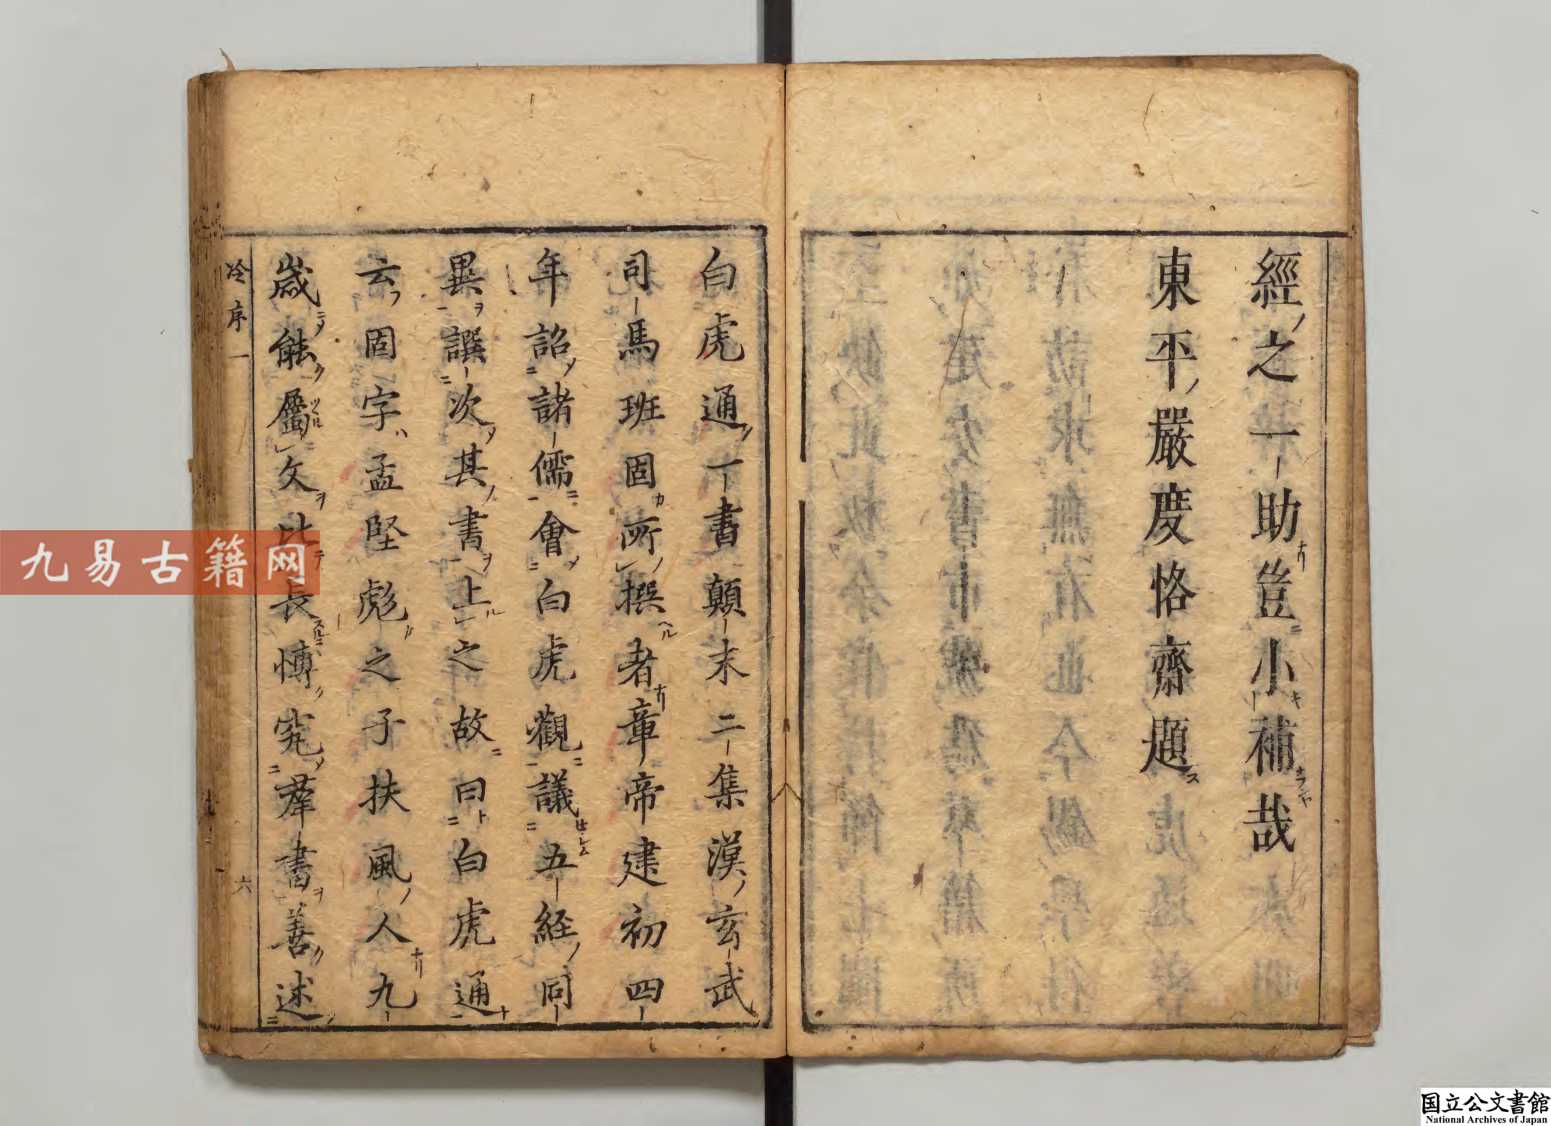 經之一助豈小補哉
東平嚴度恪齋題
白虎通一書顛末二集漢玄武
司馬班固所撰者章帝建初四
年詔諸儒會白虎觀議五経同
異譔次其書上之故曰白虎通
云固字孟堅彪之子扶風人九
歲能屬文比長愽究羣書善述
冷序一
六
九易古籍网
国立公文書館
National Archives of Japan